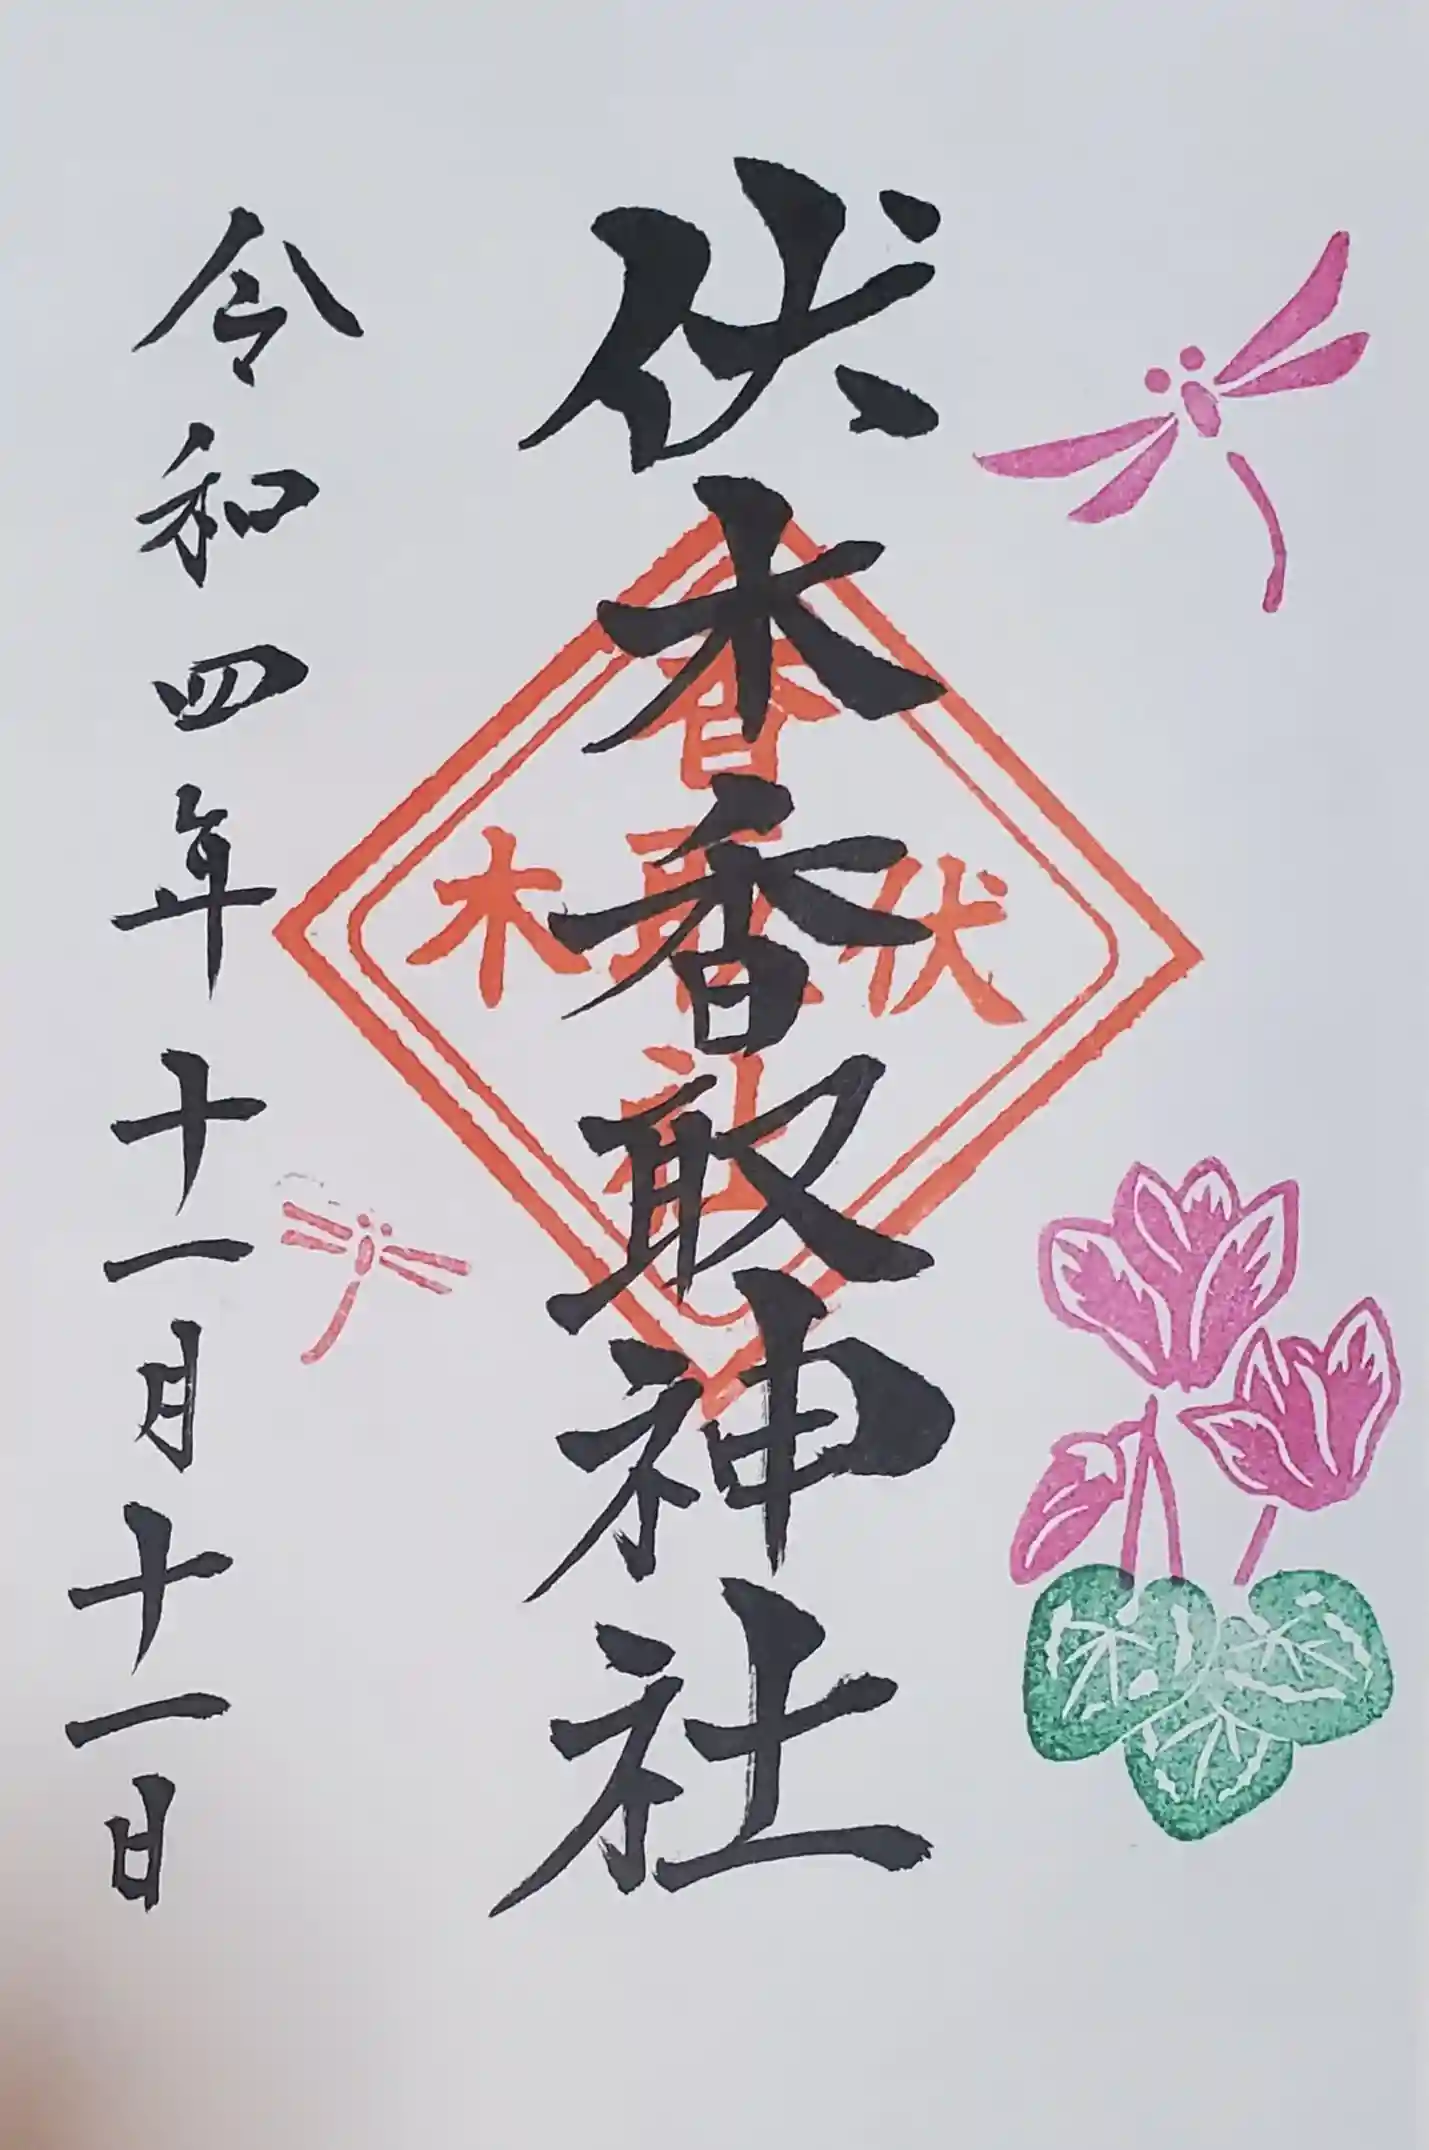 伏木香取神社
伏木
香取社
令和四年十一月十一日